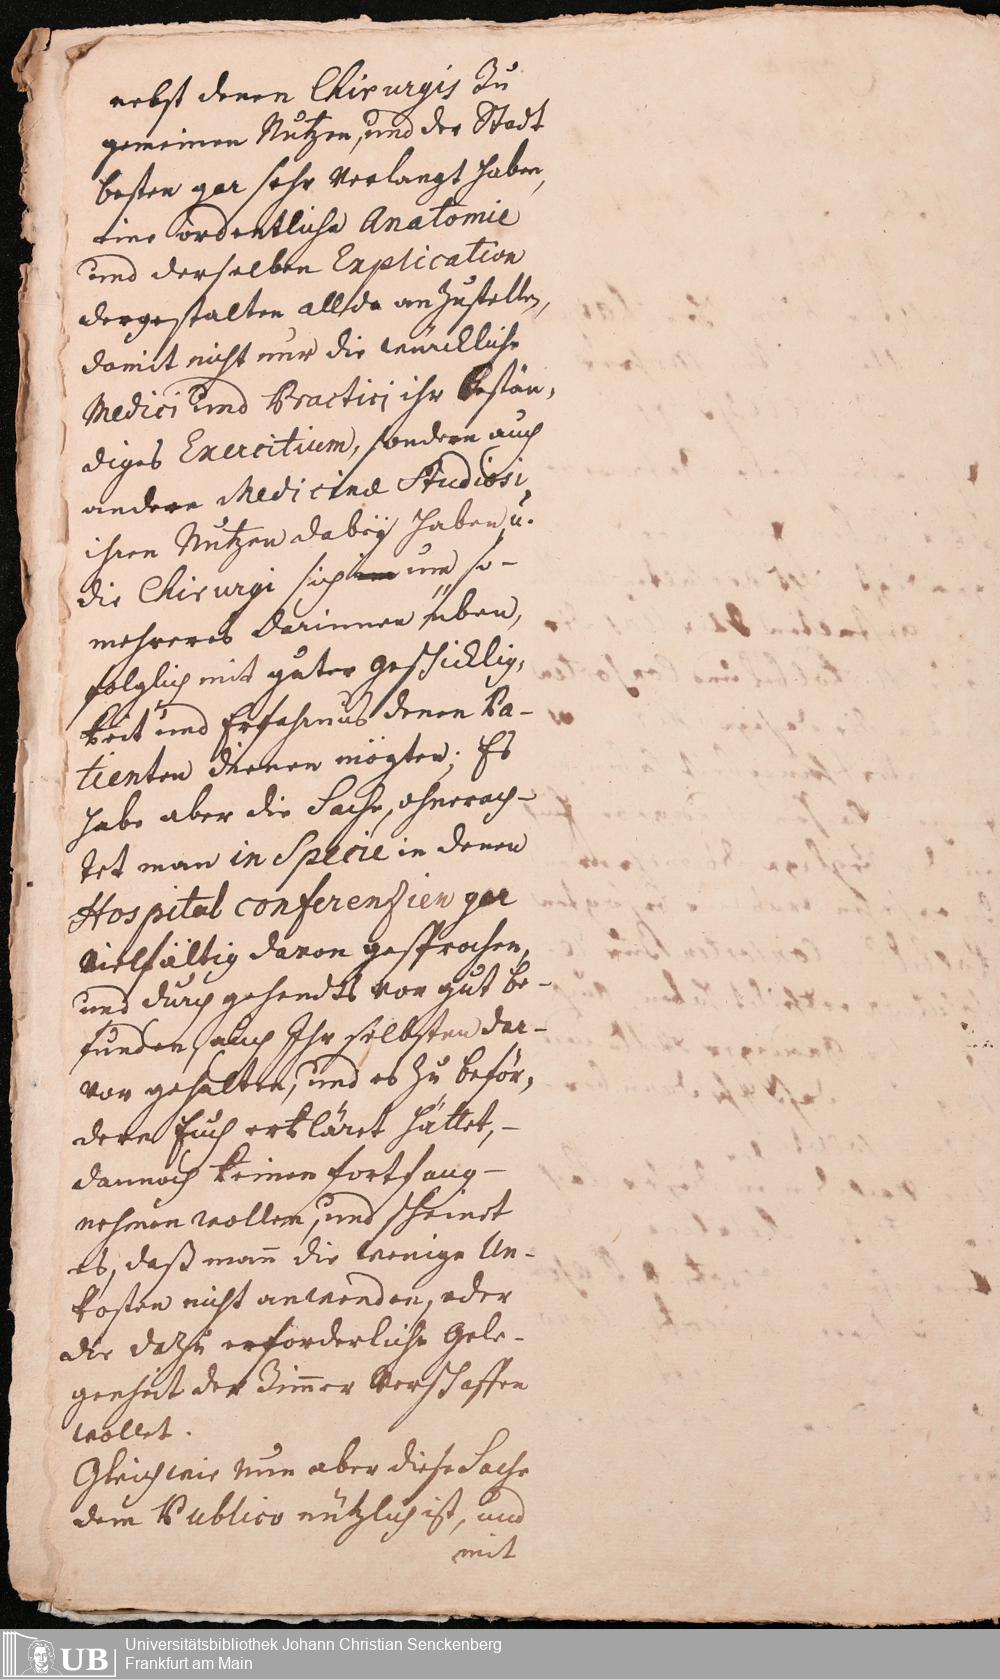 nebst denen Chirurgis zu
gemeinen Nutzen, und der Stadt
besten gar sehr verlangt haben,
eine ordentliche Anatomie
und derselben Explication
dergestalten allda anzustellen,
damit nicht nur die würckliche
Medici und Practici ihr bestän-
diges Exercitium, sondern auch
andere Medicinæ Studiosi
ihren Nutzen dabey haben u.
die Chirurgi sich um so-
mehreres darinnen üben,
folglich mit guter geschicklig-
keit und Erfahrnus denen Pa-
tienten dienen mögten; Es
habe aber die Sache, ohnerach-
tet man in Specie in denen
Hospital conferenzien gar
vielfältig davon gesprochen,
und durchgehendts vor gut be-
funden, auch Ihr selbsten dar-
vor gehalten, und es zu beför-
dern Euch erkläret hättet,-
dannoch keinen fortfang-
nehmen wollen, und scheinet
es, daß mann die wenige Un-
kosten nicht anwenden, oder
die dazu erforderliche Gele-
genheit der Zimmer verschaffen
wollet.
Gleichwie nun aber diese Sache
dem Publico nützlich ist, und
mit
UB
Universitätsbibliothek Johann Christian Senckenberg
Frankfurt am Main